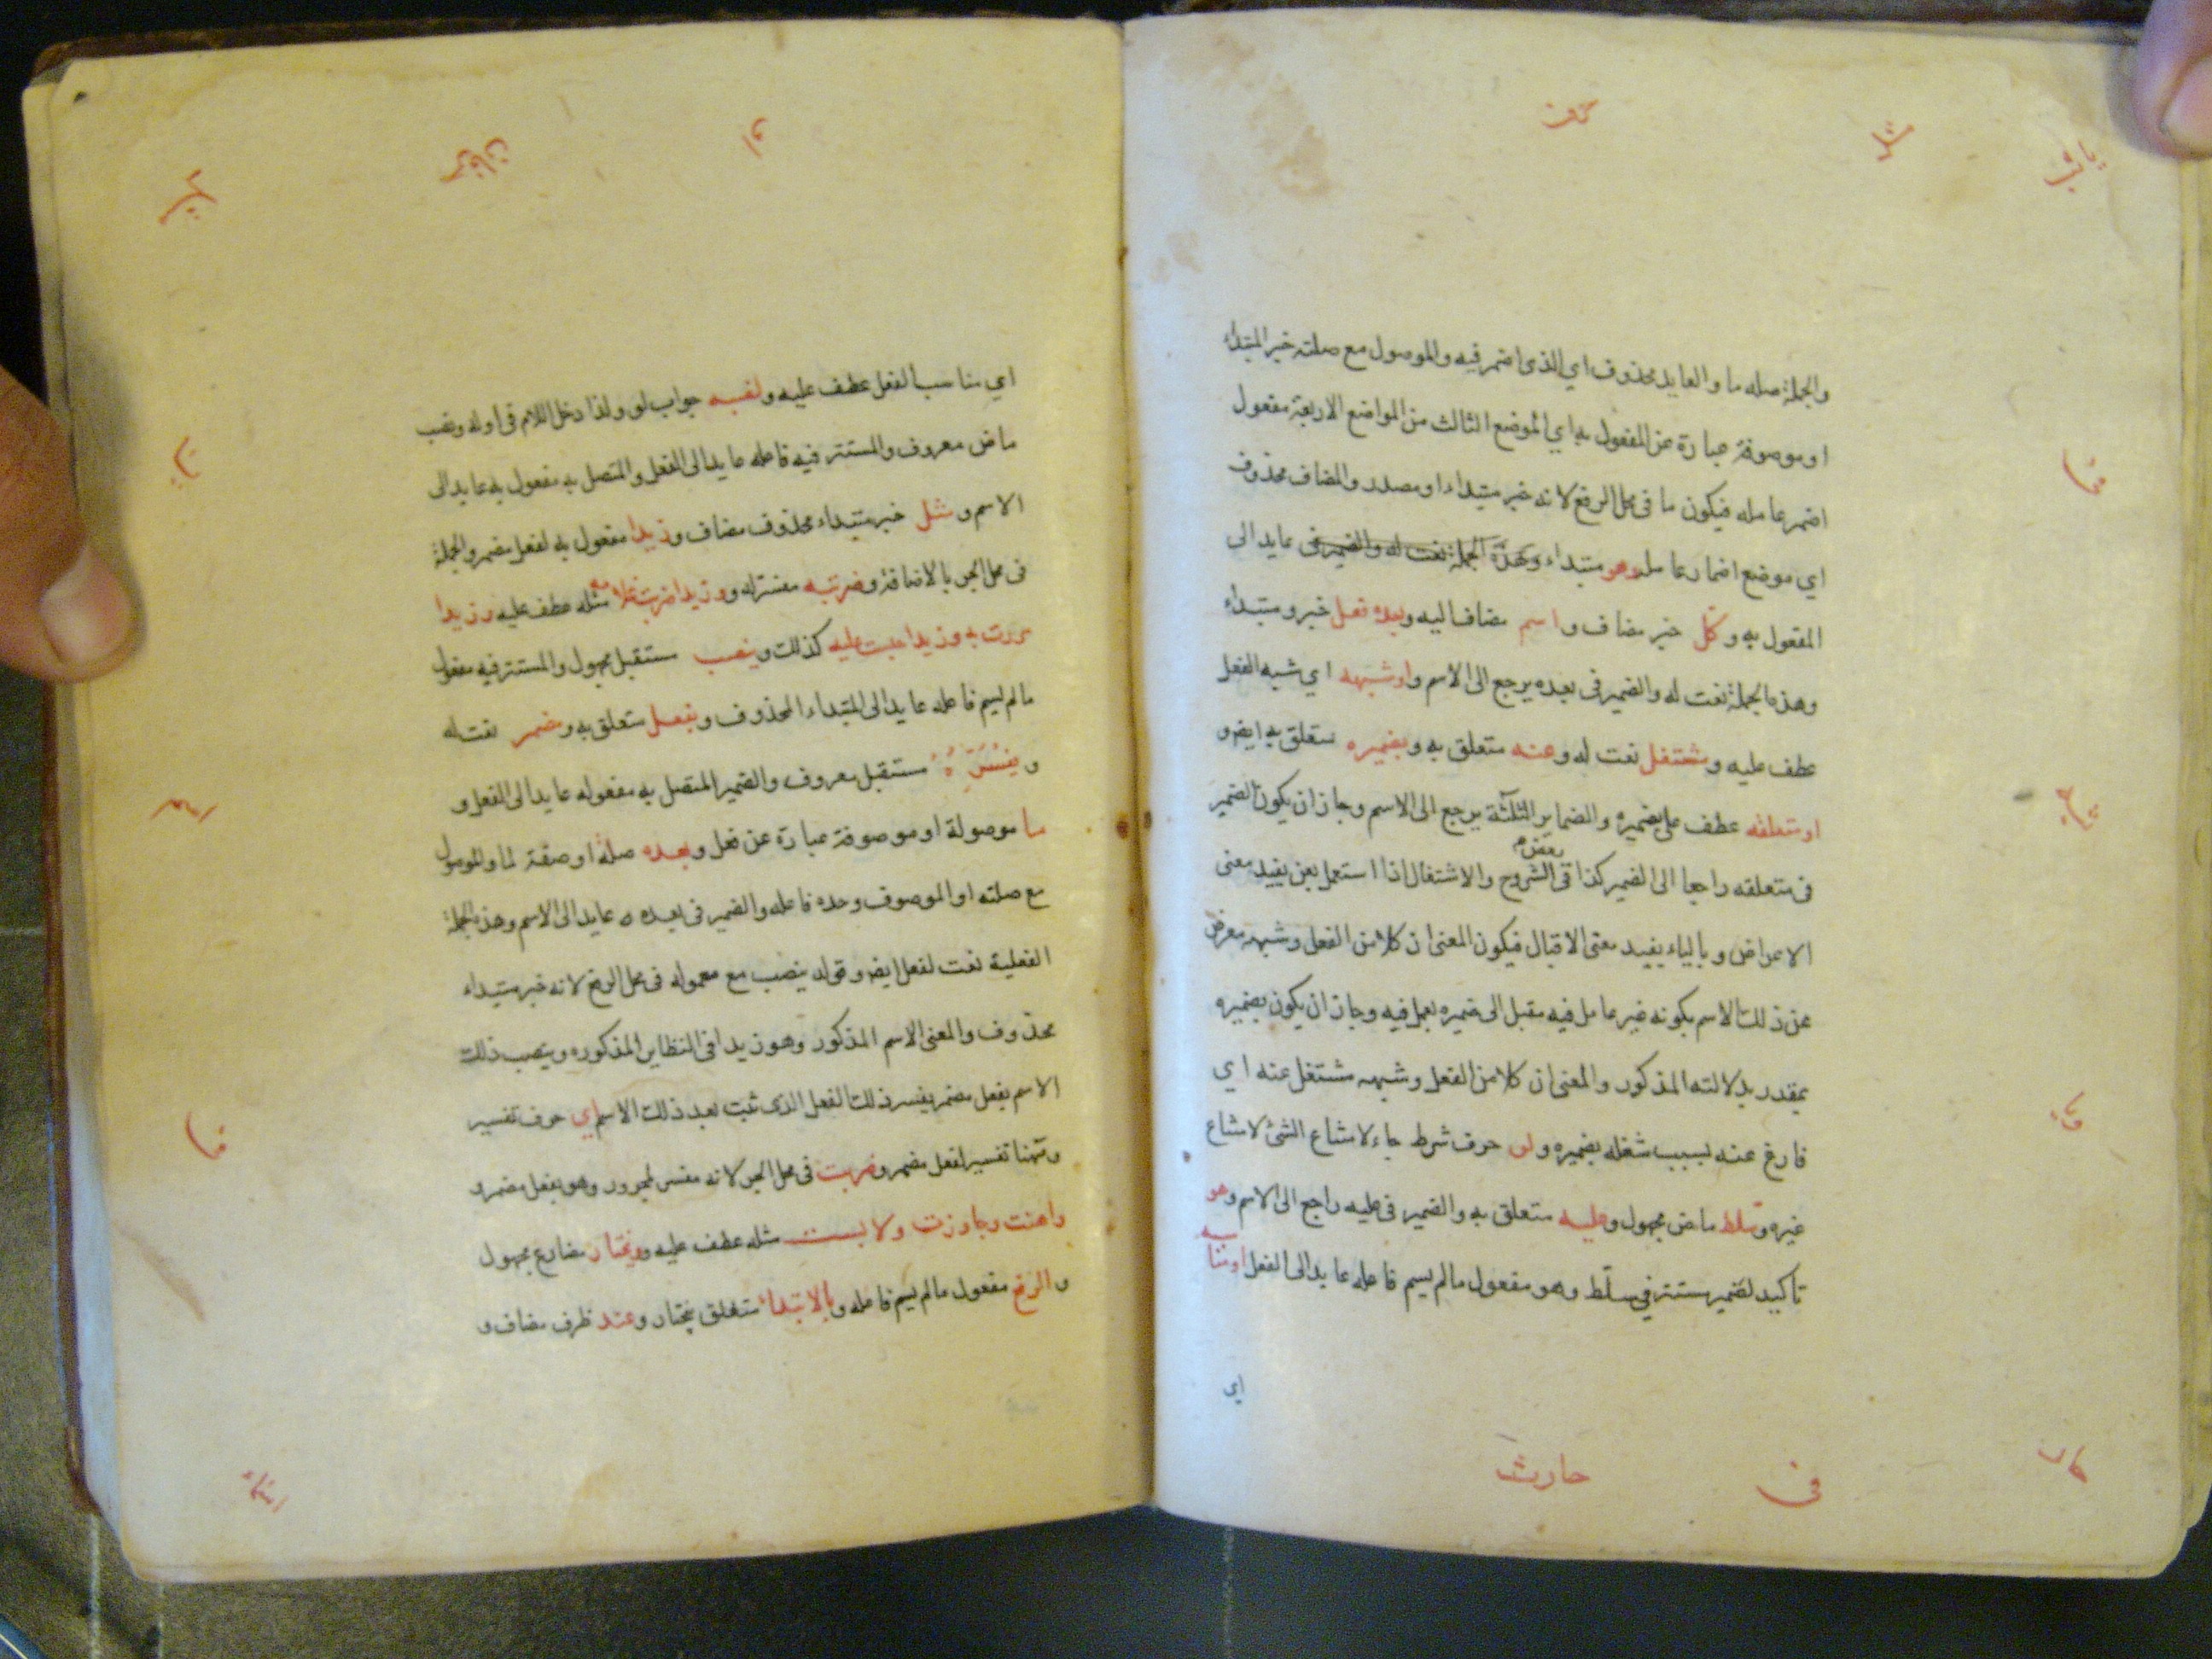 والجملة صله ما والعايد محذوف اي الذى اضمر فيه والموصول مع صلته خبر المبتداء
او موصوفة عبارة عن المفعول به اي الموضع الثالث من المواضع الاربعة مفعول
اضمر عامله فيكون ما فى محل الرفع لانه خبر مبتداء او مصدر والمضاف محذوف
اي موضع اضمار عامله وهو مبتداء وهذه الجملة نعت له والضمير فى عايد الى
المفعول به وكل خبر مضاف واسم مضاف اليه وبعده فعل خبر ومبتداء
وهذه الجملة نعت له والضمير فى بعده يرجع الى الاسم واو شبهه اي شبه الفعل
عطف عليه ومشتغل نعت له وعنه متعلق به وبضميره متعلق به ايضا و
او متعلقه عطف على بضميره والضماير الثلثة يرجع الى الاسم وجاز ان يكون الضمير
بعض
فى متعلقه راجعا الى الضمير كذا فى الشروح والاشتغال اذا استعمل بعن يفيد معنى
الاعراض وبالباء يفيد معنى الاقبال فيكون المعنى ان كلا من الفعل وشبهه معرض
عن ذلك الاسم بكونه غير عامل فيه مقبل الى ضميره بعمل فيه وجاز ان يكون بضميره
بمقدر بدلالته المذكور والمعنى ان كلا من الفعل وشبهه مشتغل عنه اي
فارغ عنه بسبب شغله بضميره ولو حرف شرط جاء لامتناع الشئ لامتناع
غيره وسلط ماض مجهول وعليه متعلق به والضمير فى عليه راجع الى الاسم وهو
تاكيد لضمير مستتر في سلّط وهو مفعول مالم يسم فاعله عايد الى الفعل او مناسبه
اي
حارث
فى
اي مناسب الفعل عطف عليه ولنصبه جواب لو ولذا دخل اللام فى اوله ونصب
ماض معروف والمستتر فيه فاعله عايد الى الفعل والمتصل به مفعول به عايد الى
الاسم ومثل خبر مبتداء محذوف مضاف وزيدا مفعول به لفعل مضمر والجملة
فى محل الجر بالاضافة وضربته مفسر له ووزيدا ضربت غلامه مثله عطف عليه وزيدا
مررت به وزيدا حبست عليه كذلك وينصب مستقبل مجهول والمستتر فيه مفعول
مالم يسم فاعله عايد الى المبتداء المحذوف وبفعل متعلق به ومضمر نعت له
ويفسّره مستقبل معروف والضمير المتصل به مفعوله عايد الى الفعل و
ما موصولة او موصوفة عبارة عن فعل وبعده صلة او صفة لما والموصول
مع صلته او الموصوف وحده فاعله والضمير فى بعده عايد الى الاسم وهذه الجملة
الفعلية نعت لفعل ايضا وقوله ينصب مع معموله فى محل الرفع لانه خبر مبتداء
محذوف والمعنى الاسم المذكور وهو زيدا فى النظاير المذكوره وينصب ذلك
الاسم بفعل مضمر يفسر ذلك الفعل الذى ثبت بعد ذلك الاسم اي حرف تفسير
وههنا تفسير لفعل مضمر وضربت فى محل الجر لانه مفسر لمجرور وهو بفعل مضمر و
واهنت وجاوزت ولابست مثله عطف عليه وويختار مضارع مجهول
والرفع مفعول مالم يسم فاعله وبالابتداء متعلق بيختار وعند ظرف مضاف و